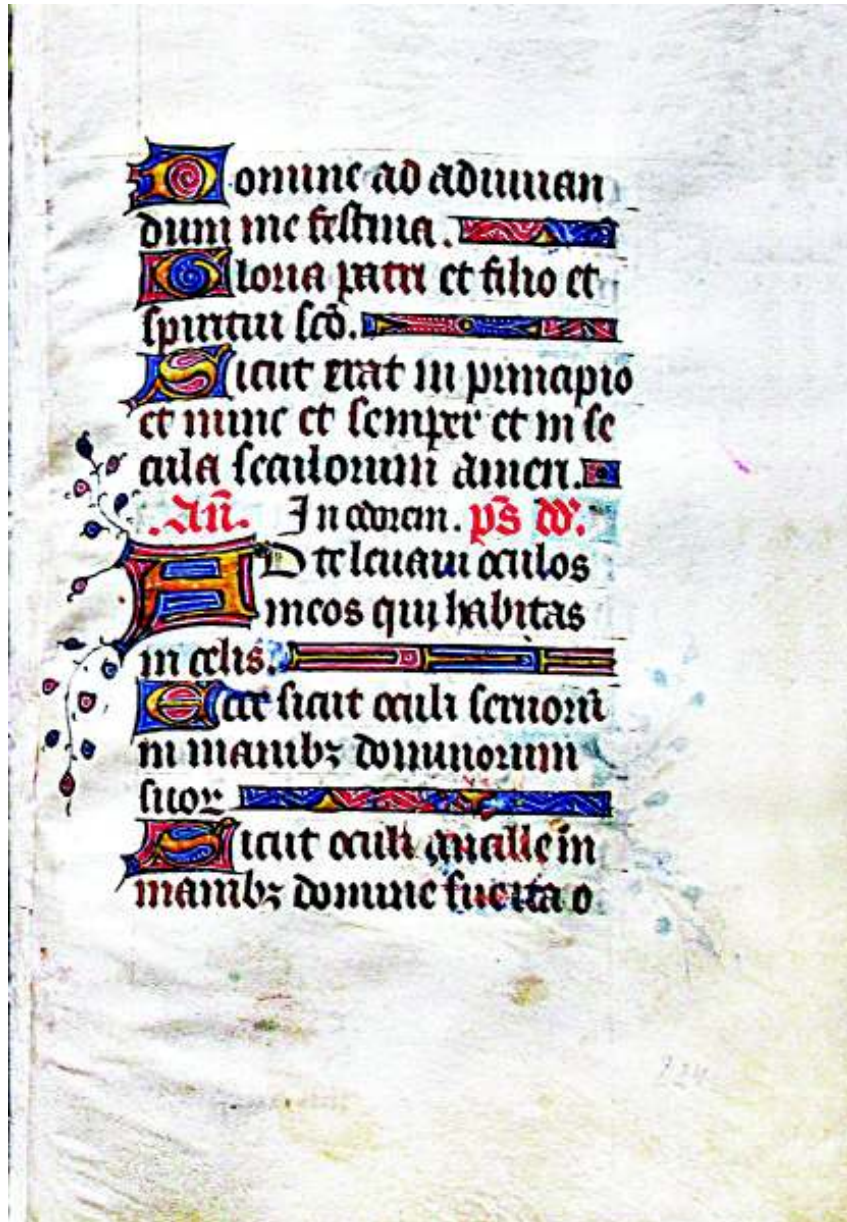 Domine ad adiuuan
dum me festina.
Gloria patri et filio et
spiritui sc̄o.
Sicut erat in principio
et nunc et semper et in se
cula seculorum amen.
.An̄. In odorem. ps̄ dd'.
AD te leuaui oculos
meos qui habitas
in celis.
Ecce sicut oculi seruorū
in manibꝫ dominorum
suoꝝ
Sicut oculi ancille in
manibꝫ domine sue ita o